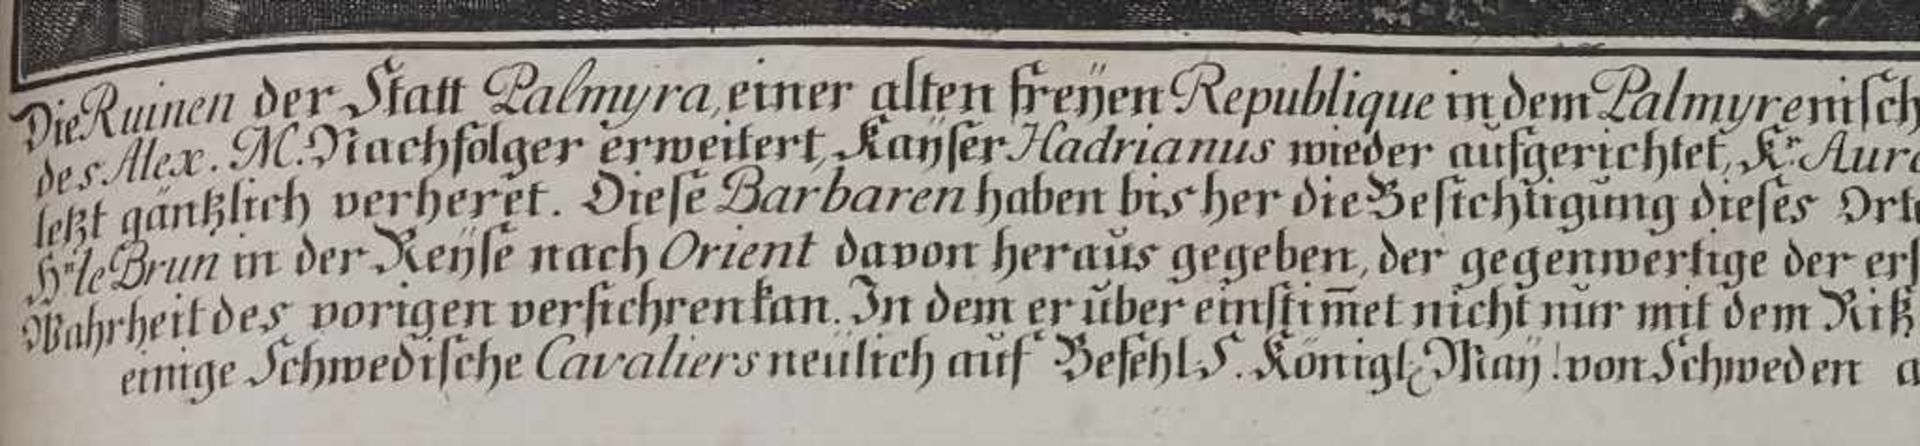 Die Ruinen der Statt Palmyra, einer alten freÿen Republique in dem Palmyrenisch
des Alex. M. Nachfolger erweitert, Kaÿser Hadrianus wieder aufgerichtet, Kr. Aure
letzt gäntzlich verheret. Diese Barbaren haben bisher die Besichtigung dieses Orte
Hr. le Brun in der Reÿse nach Orient davon heraus gegeben, der gegenwertige der ers
Wahrheit des vorigen versichren kan. In dem er über einstim̅et nicht nur mit dem Riß
einige Schwedische Cavaliers neülich auf Befehl S. Königl. Maÿ! von Schweden a